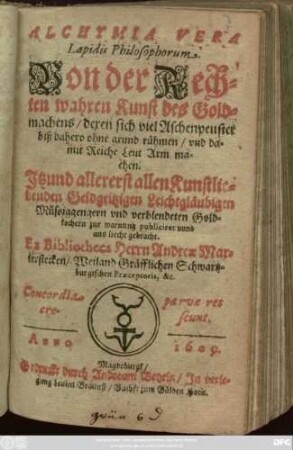 ALCHYMIA VERA
Lapidis Philosophorum.
Von der Rech-
ten wahren Kunst des Gold-
machens / deren sich viel Aschenpeuster
biß dahero ohne grund rühmen / vnd da-
mit Reiche Leut Arm ma-
chen.
Jtzund allererst allen Kunstlie-
benden Geldgeitzigen Leichtgläubigen
vnd verblendeten Gold-
suchern zur warnung publiciret vund
ans liecht gebracht.
Ex Bibliotheca Herrn Andreæ Mar-
/ Weiland Gräfflichen Schwartz-
burgischen Præceptoris, &c.
Concordia parvæ res
cre- scunt.
Anno 1609.
Magdeburgk /
Gedruckt durch / Jn verle-
gung /
grün 6